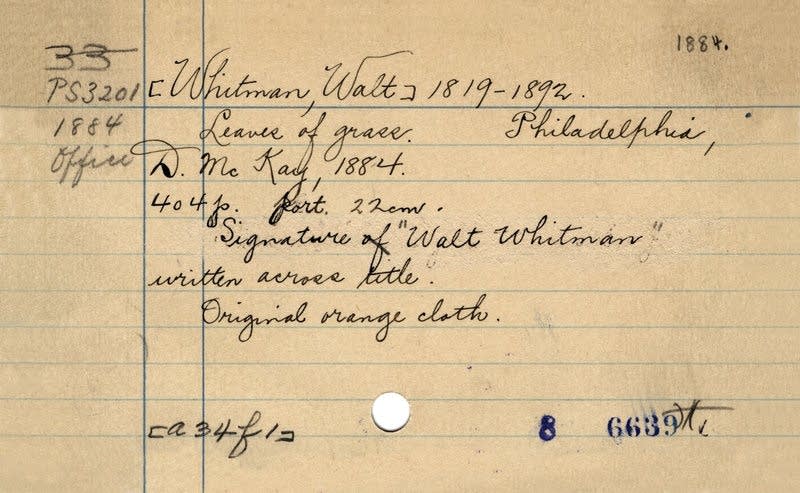 1884.
33
PS3201
1884
Office
[Whitman, Walt] 1819-1892.
Leaves of grass. Philadelphia,
D. Mc Kay, 1884.
404 p. port. 22cm.
Signature of "Walt Whitman"
written across title.
Original orange cloth.
[a34f1]
8 6639